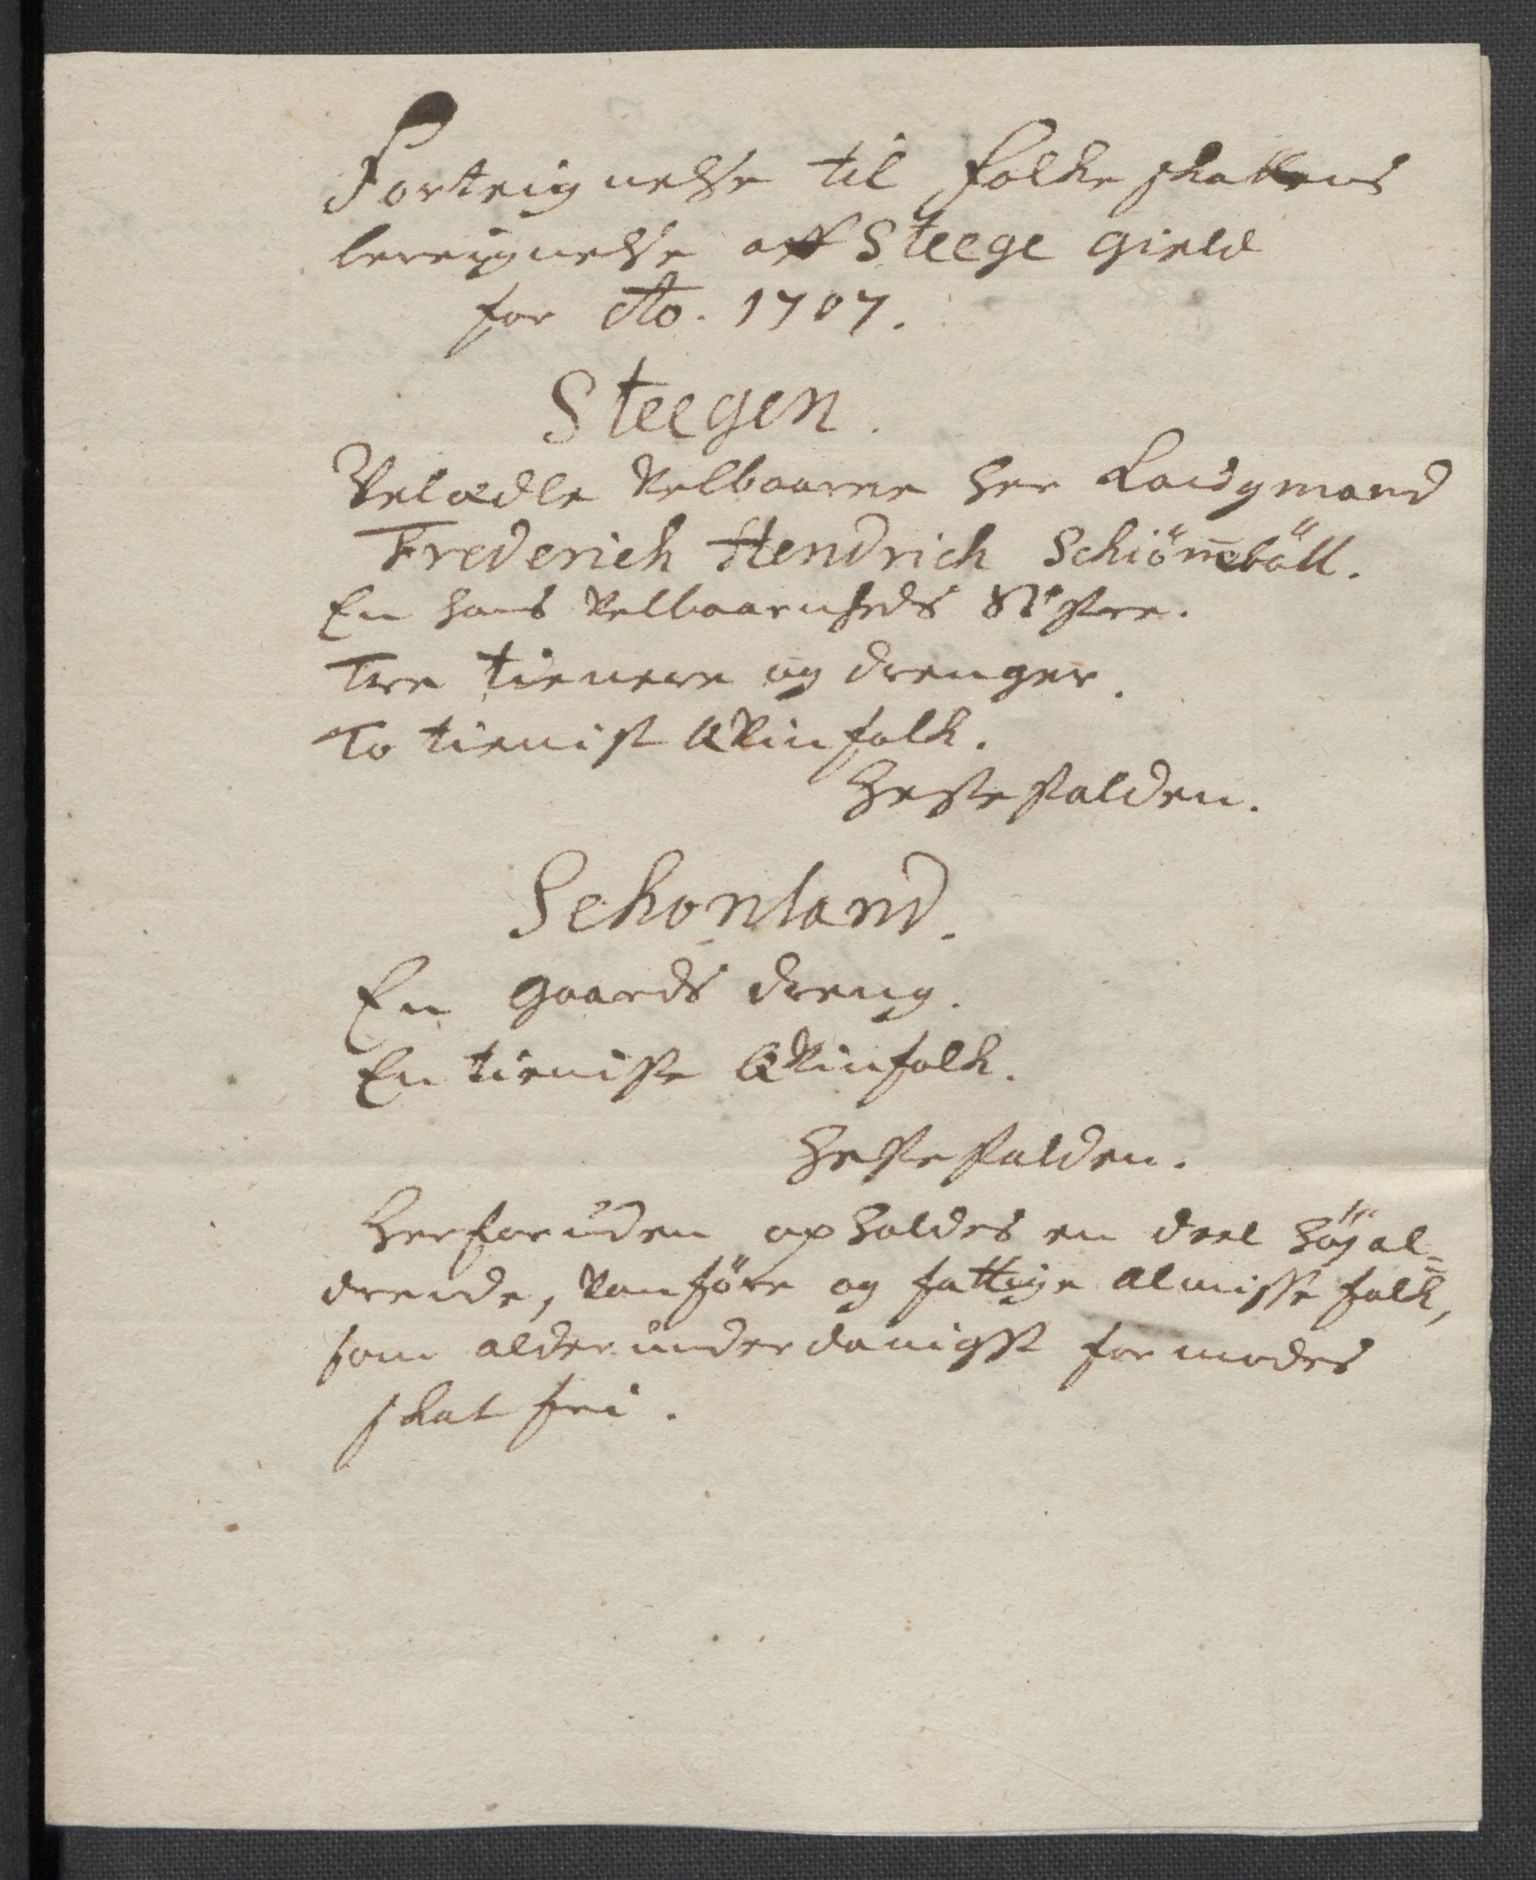 Forteignelse til folke skattens
bereignelse aff Steege gield
for Ao. 1707.
Steegen.
Velædle Velbaarne Her Laugmand
Frederich Hendrich Schiönnebøll.
En hans Velbaarenheds Søster.
Tre tienere og drenger.
To tienist Qvinfolk.
Heste skolden.
Schonland.
En gaards dreng.
En tieniste Qvinfolk.
Heste skolden.
Herforuden op holdes en deel høy al-
drende, Vanføre og fattige almisse folk,
som alder underdanigst formodes
skat fri.